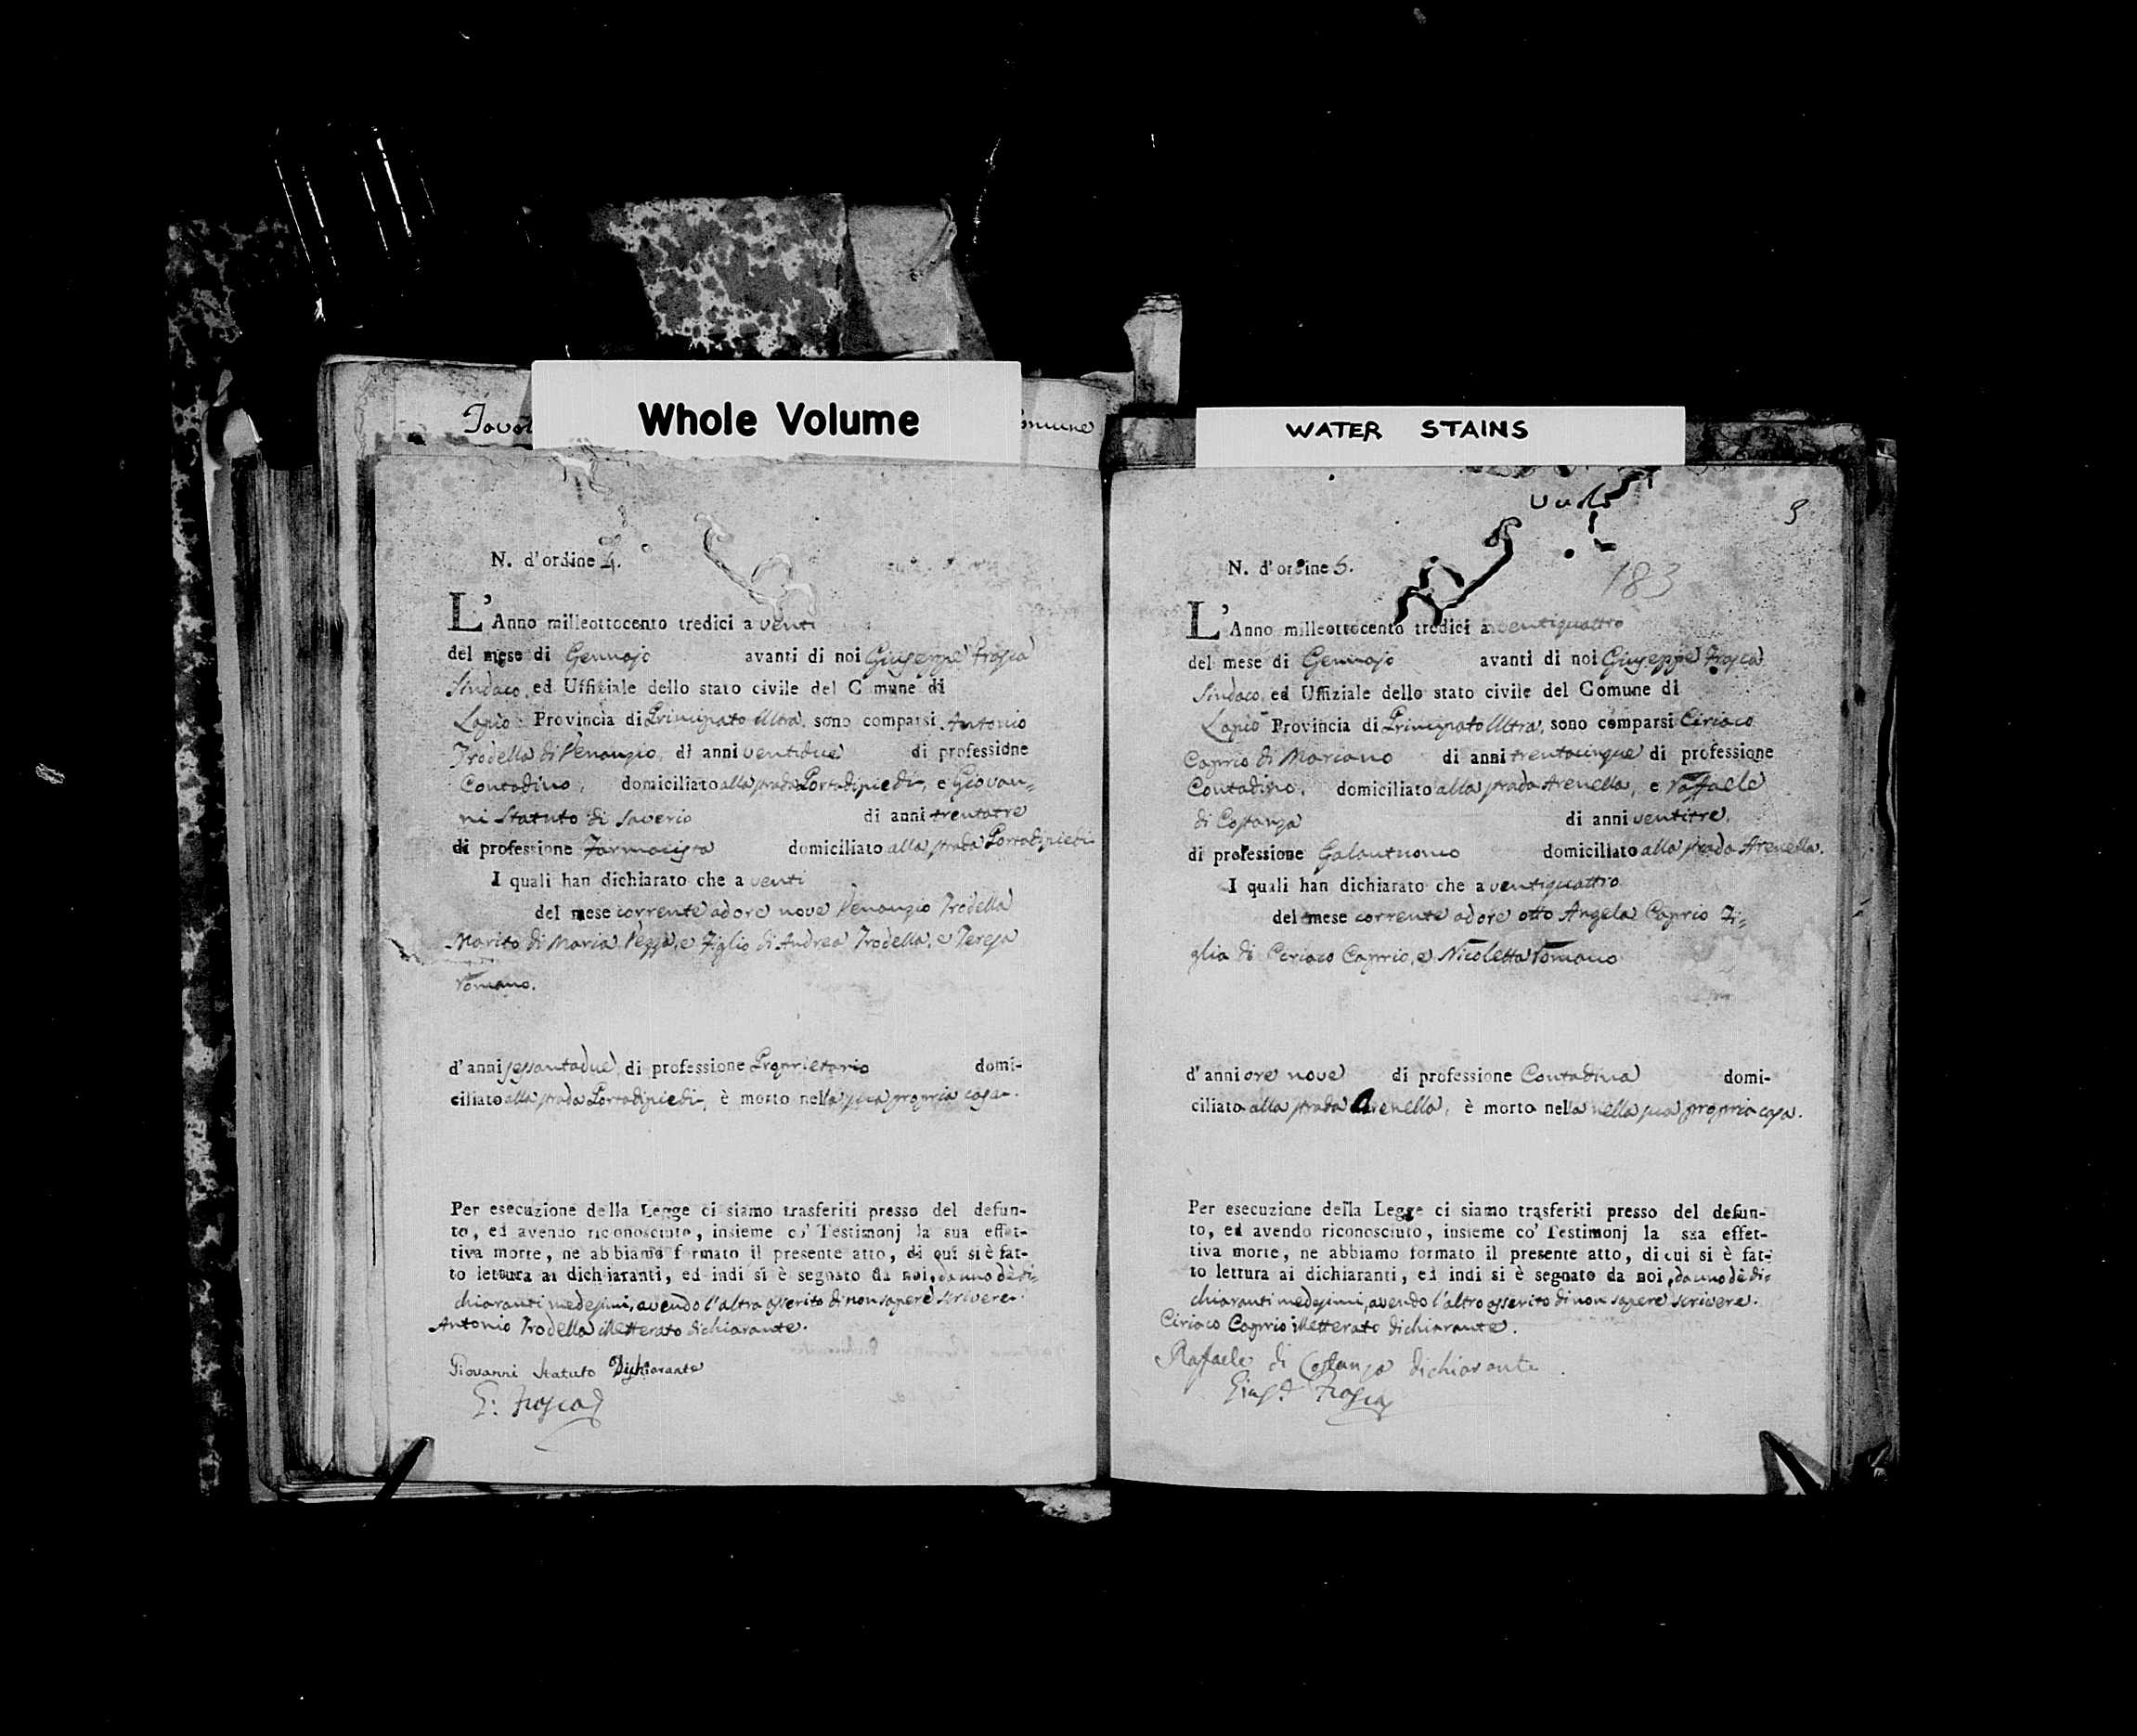 Whole Volume
WATER STAINS
Tavol
omune
N. d'ordine 4.
L'Anno milleottocento tredici a venti
del mese di Gennajo avanti di noi Giuseppe Frosca
Sindaco, ed Uffiziale dello stato civile del Comune di
Lapio Provincia di Principato Ultra, sono comparsi Antonio
Trodella di Venanzio, di anni ventidue di professione
Contadino, domiciliato alla strada Portadipiedi, e Giovan-
ni Statuto di Saverio di anni trentatre
di professione Farmacista domiciliato alla strada Portadipiedi
I quali han dichiarato che a venti
del mese corrente ad ore nove Venanzio Trodella
Marito di Maria e Figlio di Andrea Trodella, e Teresa
Romano.
d'anni sessantadue, di professione Proprietario domi-
ciliato alla strada Portadipiedi, è morto nella sua propria casa.
Per esecuzione della Legge ci siamo trasferiti presso del defun-
to, ed avendo riconosciuto, insieme co' Testimonj la sua effet-
tiva morte, ne abbiamo formato il presente atto, di cui si è fat-
to lettura ai dichiaranti, ed indi si è segnato da noi, da uno dè di-
chiaranti medesimi, avendo l'altro asserito di non sapere scrivere.
Antonio Trodella illetterato dichiarante.
Giovanni Statuto Dichiarante
G: Frosca
3
183
N. d'ordine 5.
L'Anno milleottocento tredici a ventiquattro
del mese di Gennajo avanti di noi Giuseppe Frosca
Sindaco, ed Uffiziale dello stato civile del Comune di
Lapio Provincia di Principato Ultra, sono comparsi Ciriaco
Caprio di Mariano di anni trentacinque di professione
Contadino, domiciliato alla strada Arenella, e Raffaele
di Costanza di anni ventitre,
di professione Galantuomo domiciliato alla strada Arenella.
I quali han dichiarato che a ventiquattro
del mese corrente ad ore otto Angela Caprio Fi-
glia di Ceriaco Caprio, e Nicoletta Romano
d'anni ore nove di professione Contadina domi-
ciliata alla strada Arenella, è morta nella nella sua propria casa.
Per esecuzione della Legge ci siamo trasferiti presso del defun-
to, ed avendo riconosciuto, insieme co' Testimonj la sua effet-
tiva morte, ne abbiamo formato il presente atto, di cui si è fat-
to lettura ai dichiaranti, ed indi si è segnato da noi, da uno dè di-
chiaranti medesimi, avendo l'altro asserito di non sapere scrivere.
Ciriaco Caprio illetterato dichiarante.
Raffaele di Costanza dichiarante.
Gius.e Frosca